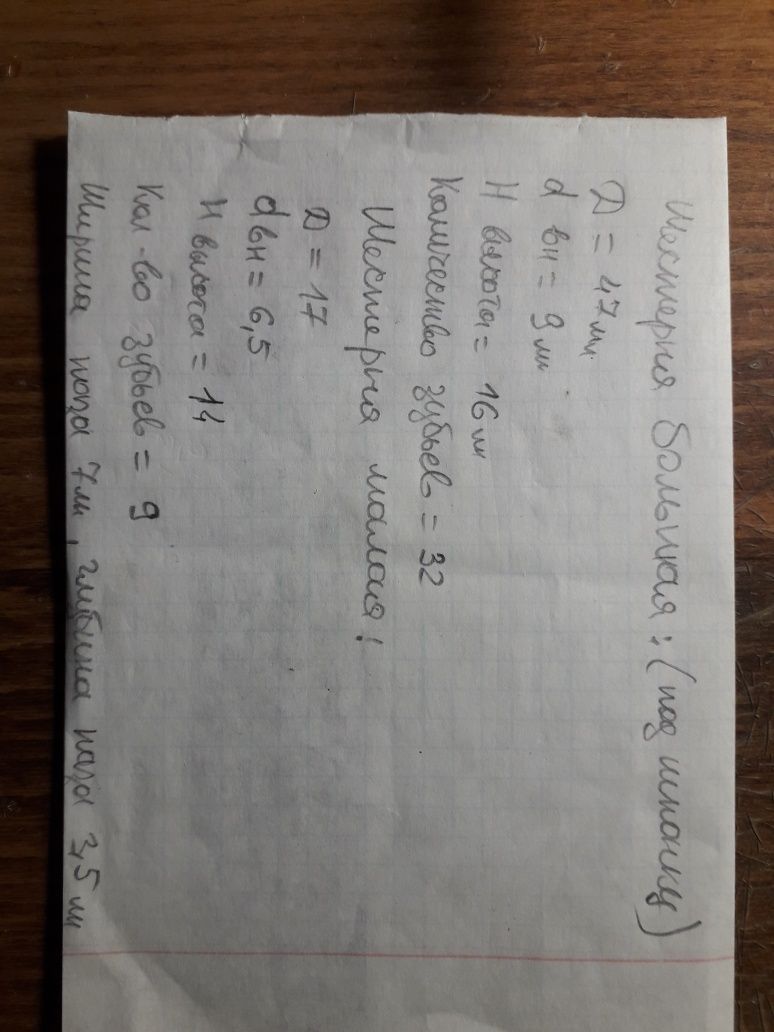 Шестерня большая: (под шпонку)
D = 47мм.
d вн = 9 м
H высота = 16 мм
Количество зубьев = 32
Шестерня малая!
D = 17
dвн = 6,5
H высота = 14
Кол-во зубьев = 9
Ширина паза 7мм, глубина паза 3,5 мм